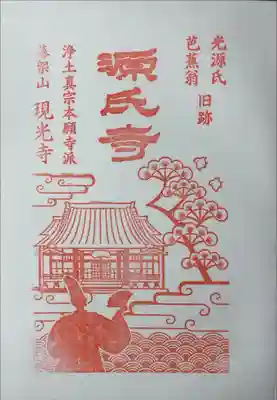 光源氏
芭蕉翁 旧跡
源氏寺
浄土真宗本願寺派
藩架山 現光寺